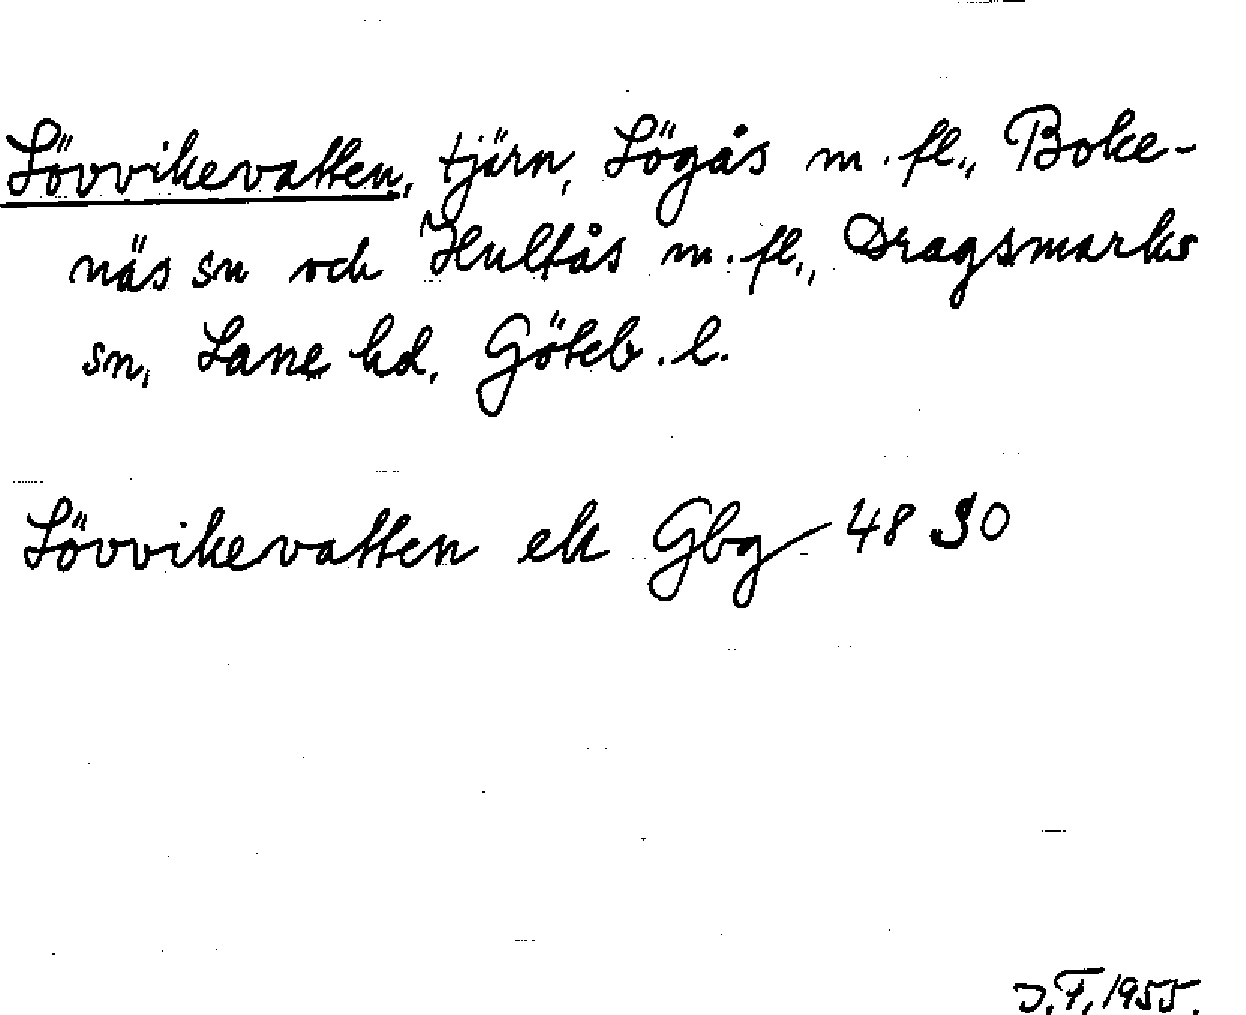 Lövvikevatten, tjärn, Lögås m. fl., Boke-
näs sn och Hultås m. fl., Dragsmarks
sn, Lane hd, Göteb. l.
Lövvikevatten ek Gbg 48 SO
J.F. 1955.